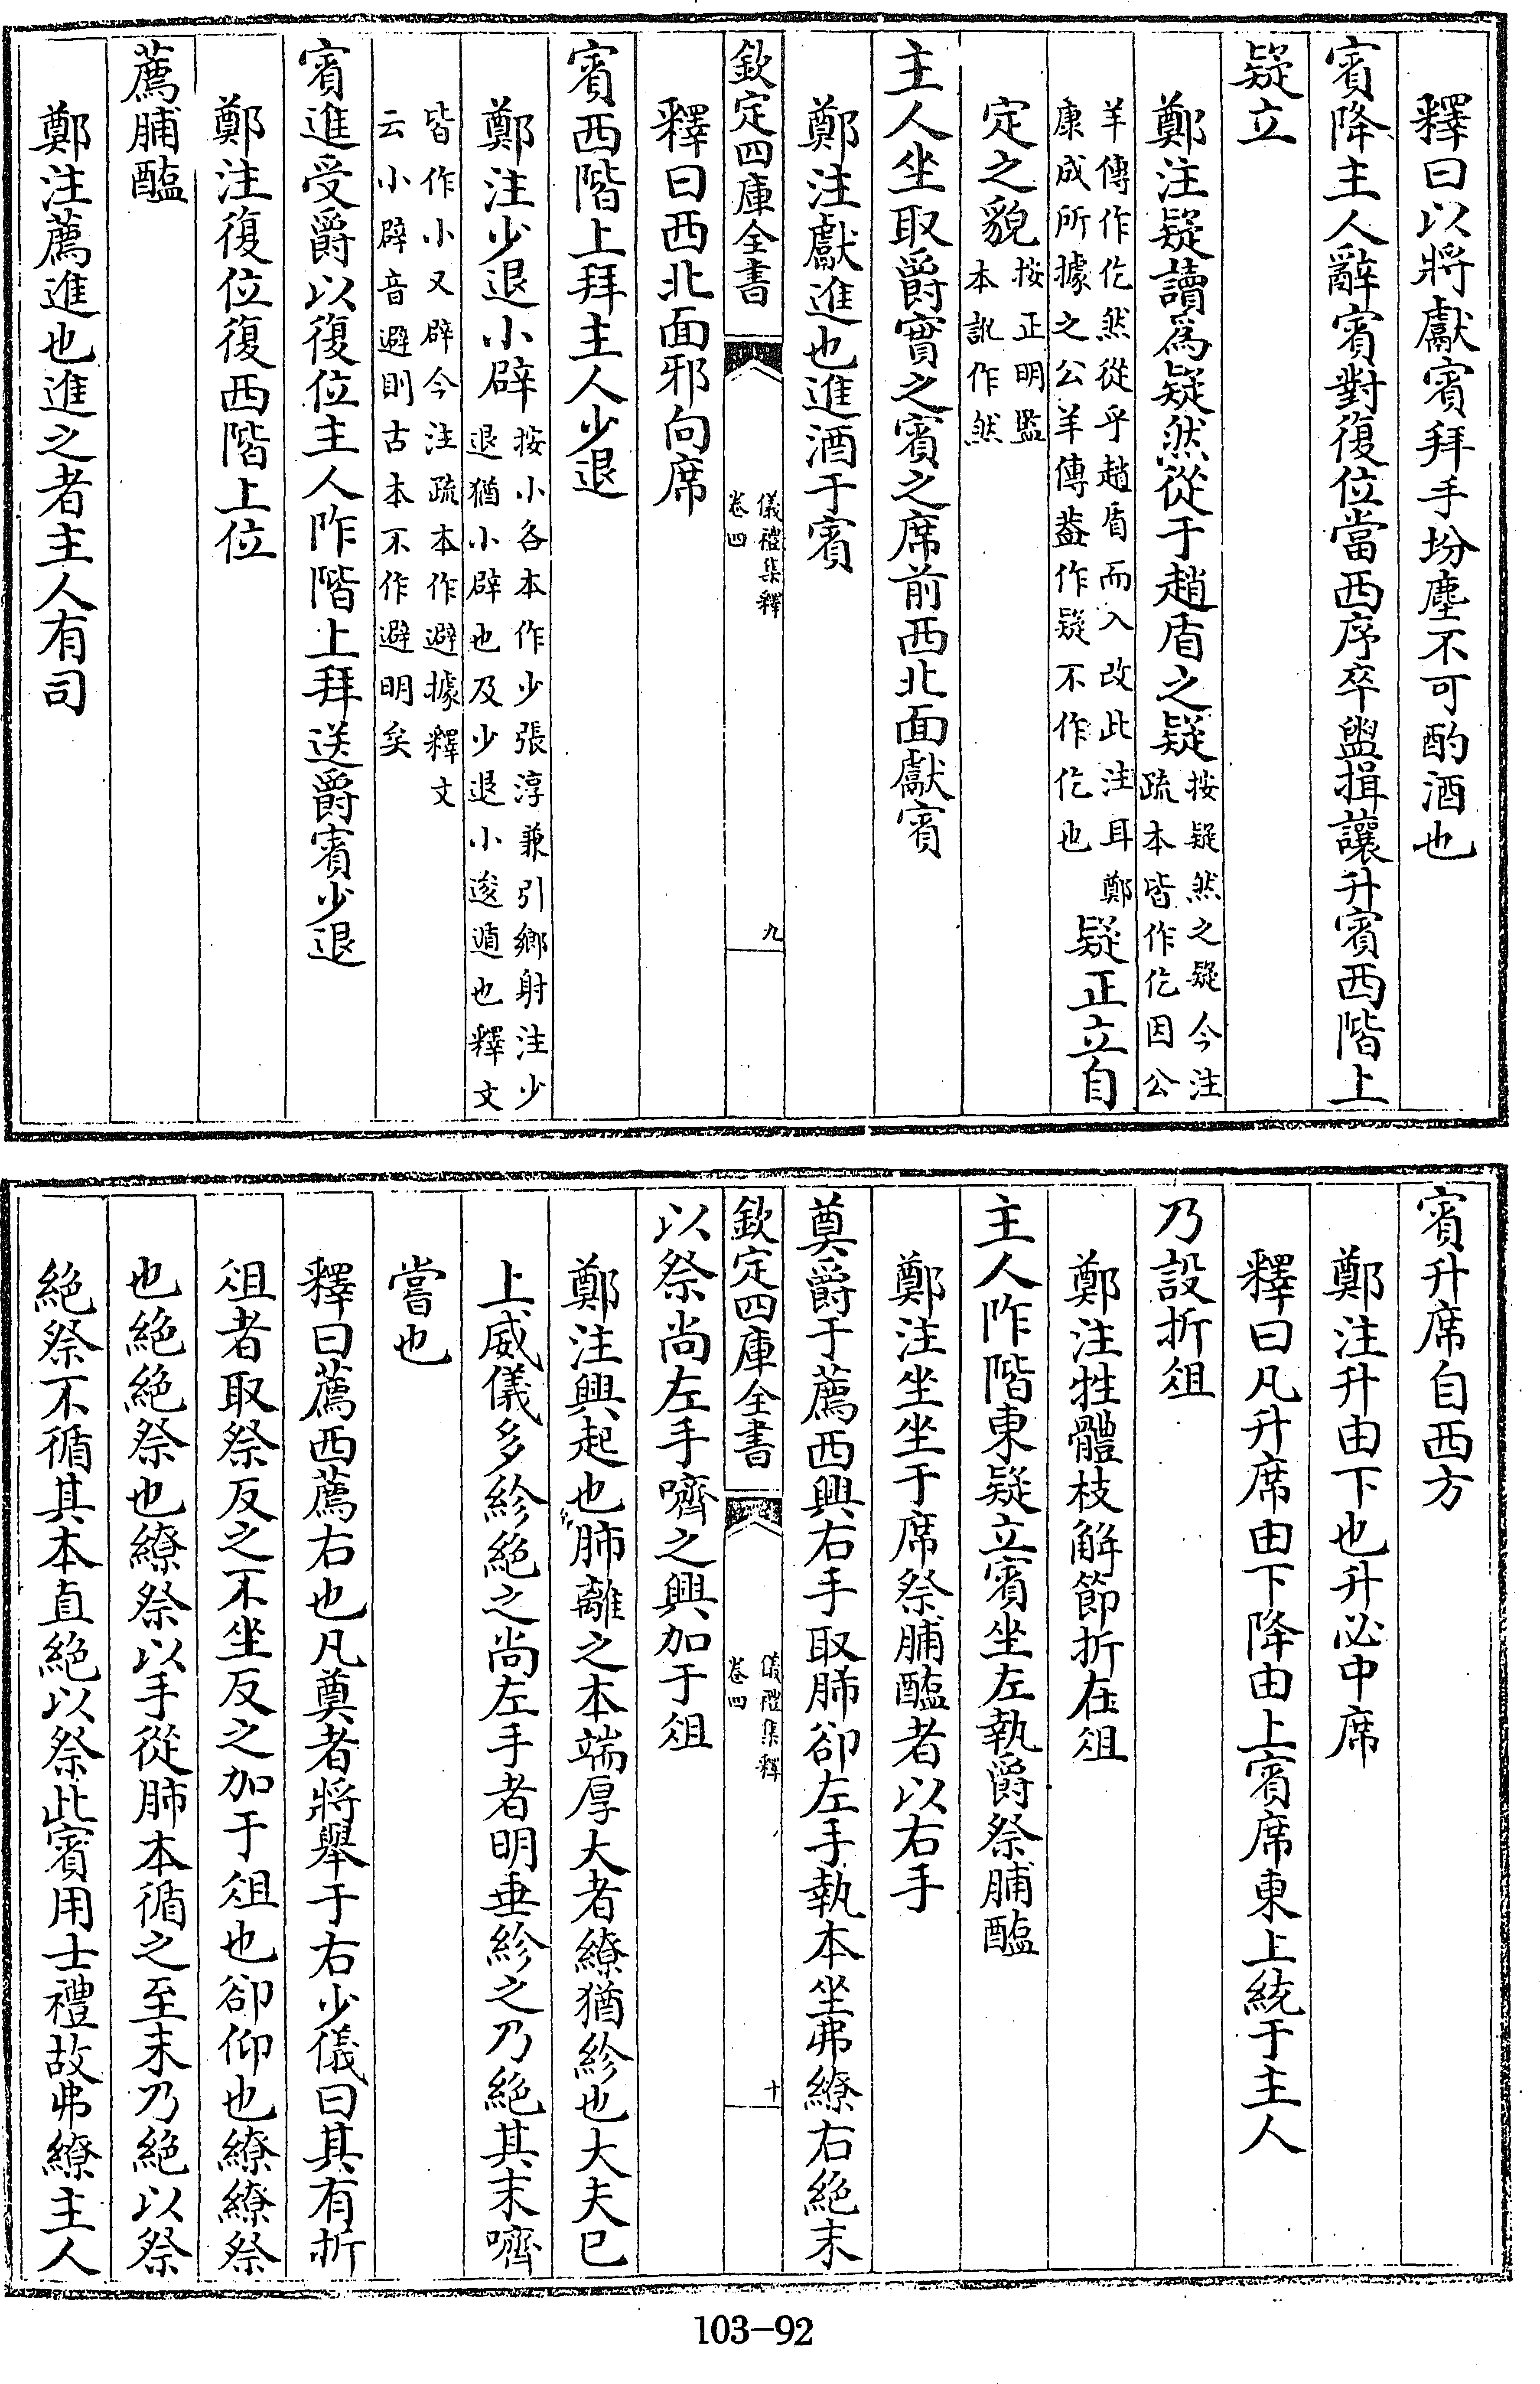 釋曰以將獻賓拜手坋塵不可酌酒也
賓降主人辭賓對復位當西序卒盥揖讓升賓西階上
疑立
鄭注疑讀為疑然從于趙盾之疑按疑然之疑今注
疏本皆作仡因公
羊傳作仡然從乎趙盾而入改此注耳鄭
康成所據之公羊傳葢作疑不作仡也疑正立自
定之貌按正明監
本訛作然
主人坐取爵實之賓之席前西北面獻賓
鄭注獻進也進酒于賓
欽定四庫全書
儀禮集釋
卷四
九
釋曰西北面邪向席
賓西階上拜主人少退
鄭注少退小辟按小各本作少張淳兼引鄉射注少
退猶小辟也及少退小逡遁也釋文
皆作小又辟今注疏本作避據釋文
云小辟音避則古本不作避明矣
賓進受爵以復位主人阼階上拜送爵賓少退
鄭注復位復西階上位
薦脯醢
鄭注薦進也進之者主人有司
賓升席自西方
鄭注升由下也升必中席
釋曰凡升席由下降由上賓席東上統于主人
乃設折俎
鄭注牲體枝解節折在俎
主人阼階東疑立賓坐左執爵祭脯醢
鄭注坐坐于席祭脯醢者以右手
奠爵于薦西興右手取肺郤左手執本坐弗繚右絕末
欽定四庫全書
儀禮集釋
卷四
十
以祭尚左手嚌之興加于俎
鄭注興起也肺離之本端厚大者繚猶紾也大夫已
上威儀多紾絕之尚左手者明垂紾之乃絕其末嚌
嘗也
釋曰薦西薦右也凡奠者將舉于右少儀曰其有折
俎者取祭反之不坐反之加于俎也郤仰也繚繚祭
也絕絕祭也繚祭以手從肺本循之至末乃絕以祭
絕祭不循其本直絕以祭此賓用士禮故弗繚主人
103-92